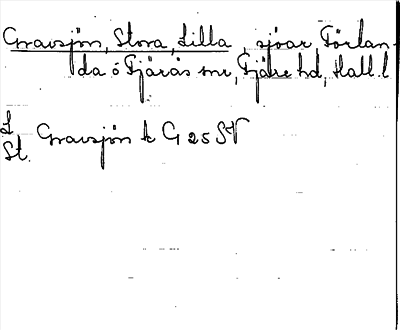 Gravsjön, Stora, Lilla, sjöar, Förlan-
da o Fjärås snr, Fjäre hd, Hall. l
L
St. Gravsjön tk G 25 SV